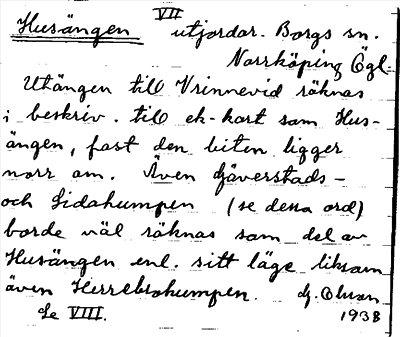 Husängen VII utjordar. Borgs sn.
Norrköping Ögl.
Utängen till Vrinnevid räknas
i beskriv. till ek-kart som Hus-
ängen, fast den biten ligger
norr om. Även Gäverstads-
och Lidahumpen (se dessa ord)
borde väl räknas som del av
Husängen enl. sitt läge liksom
även Herrebrohumpen. G. Olsson
Se VIII. 1938